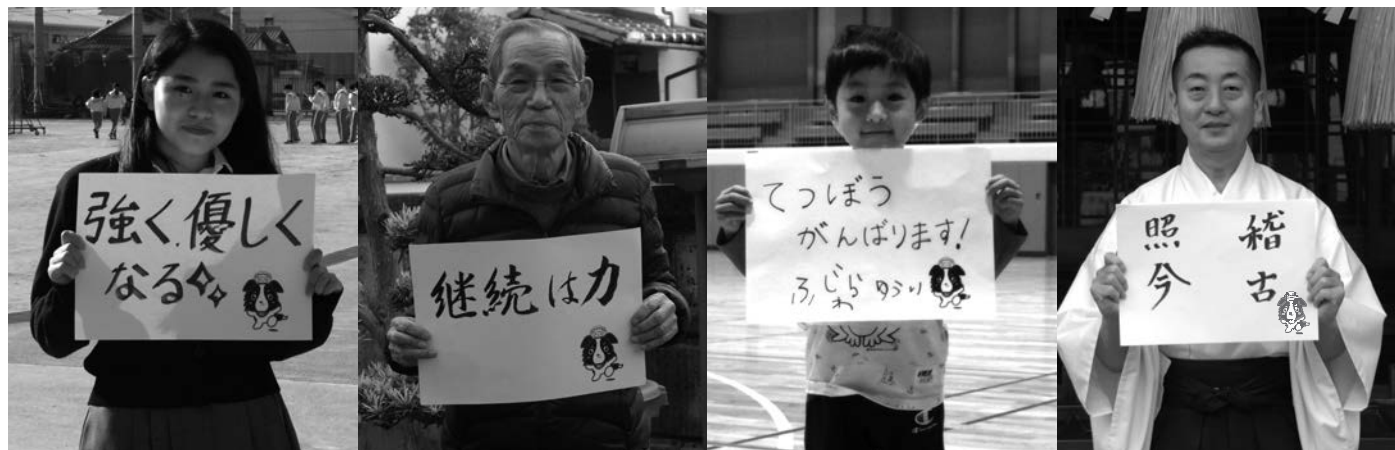 強く、優しく
なる
継続は力
てつぼう
がんばります!
ふじわら ゆうい
稽古
照今